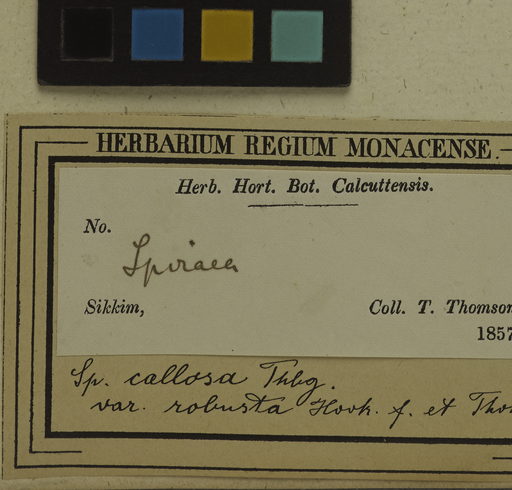 HERBARIUM REGIUM MONACENSE.
Herb. Hort. Bot. Calcuttensis.
No.
Spiraea
Sikkim, Coll. T. Thomson
1857
Sp. callosa Thbg.
var. robusta Hook. f. et